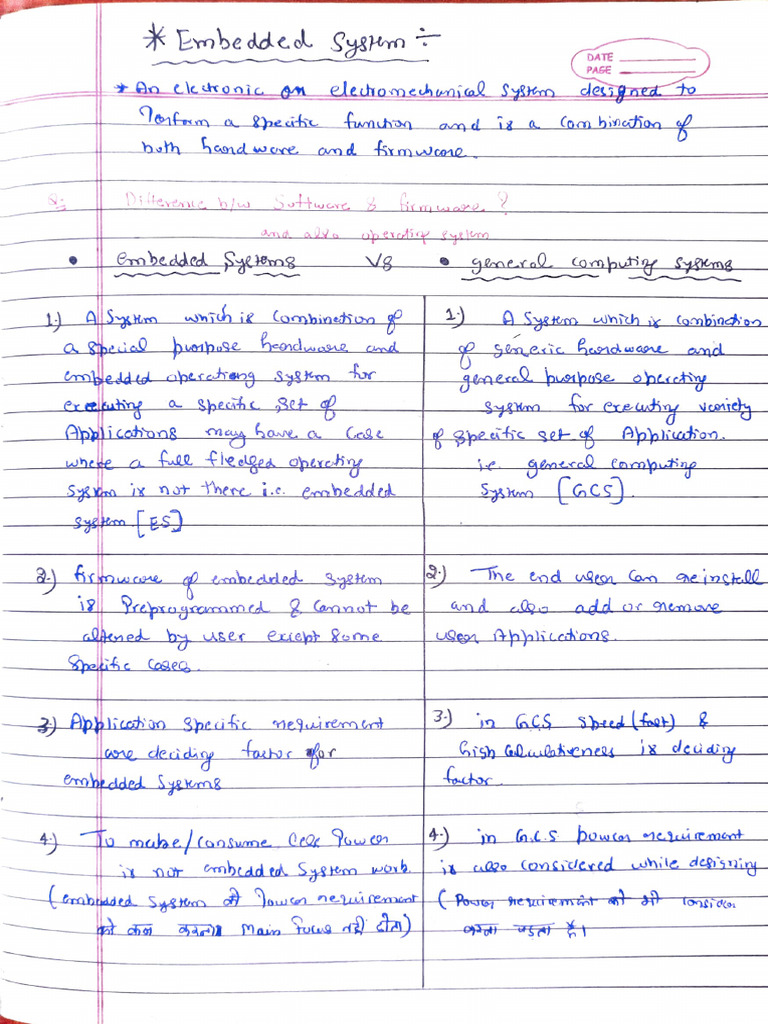 * Embedded System ÷
DATE
PAGE
* An electronic on electromechanical System designed to
Perform a specific function and is a combination of
both hardware and firmware.
Q:- Difference b/w Software & firmware ?
and also operating system
• embedded Systems Vs • general computing systems
1.) A System which is combination of
a special purpose hardware and
embedded operating system for
executing a specific set of
Applications may have a case
where a full fledged operating
system is not there i.e. embedded
system [ES]
1.) A System which is combination
of generic hardware and
general purpose operating
system for executing variety
of specific set of Application.
i.e. general computing
System [GCS].
2.) firmware of embedded system
is Preprogrammed & cannot be
altened by user except Some
Specific cases.
2.) The end user can reinstall
and also add or remove
user Applications.
3.) Application specific requirement
are deciding factor for
embedded Systems
3.) in GCS speed (fast) &
high is deciding
factor.
4.) To make/consume less Power
is not embedded System work.
(embedded System में Power requirement
को कम करना main focus नहीं होता)
4.) in G.C.S power requirement
is also considered while designing
(Power requirement को भी consider
करना पड़ता है।